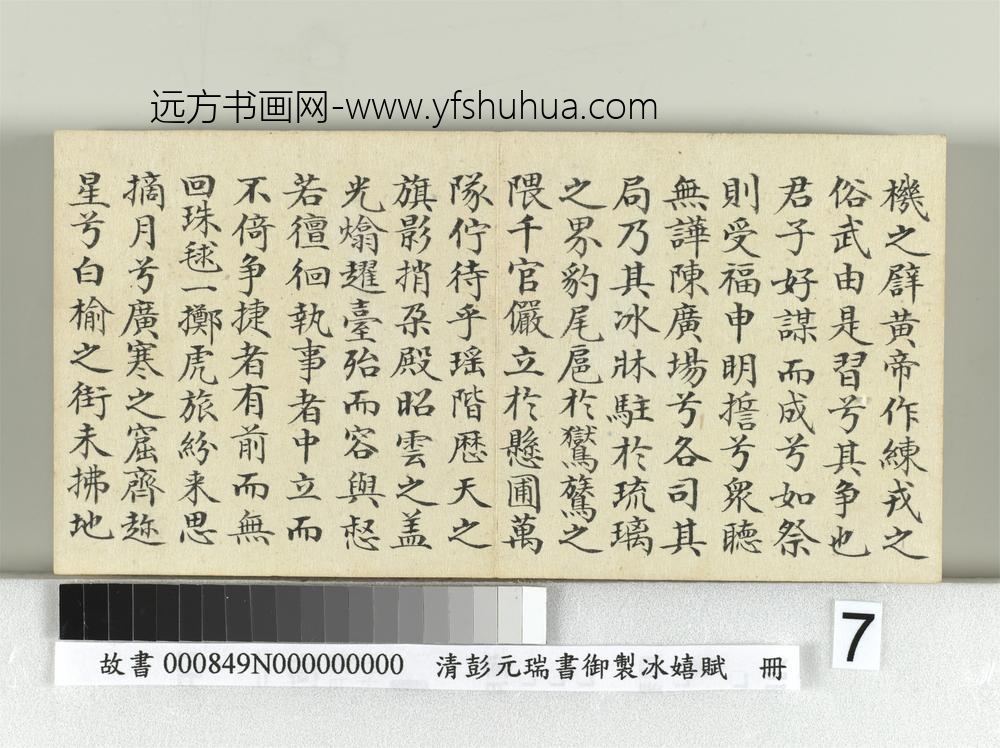 远方书画网-www.yfshuhua.com
機之辟黄帝作練戎之
俗武由是習兮其争也
君子好謀而成兮如祭
則受福申明誓兮衆聴
無譁陳廣場兮各司其
局乃其冰牀駐於琉璃
之界豹尾扈於鸑鷟之
隈千官儼立於懸圃萬
隊佇待乎瑶階歴天之
旗影捎朶殿昭雲之盖
光熻趯臺殆而容與憩
若儃徊執事者中立而
不倚争捷者有前而無
回珠毬一擲虎旅紛来思
摘月兮廣寒之窟齊趂
星兮白榆之街未拂地
7
故書 000849N000000000 清彭元瑞書御製冰嬉賦 冊